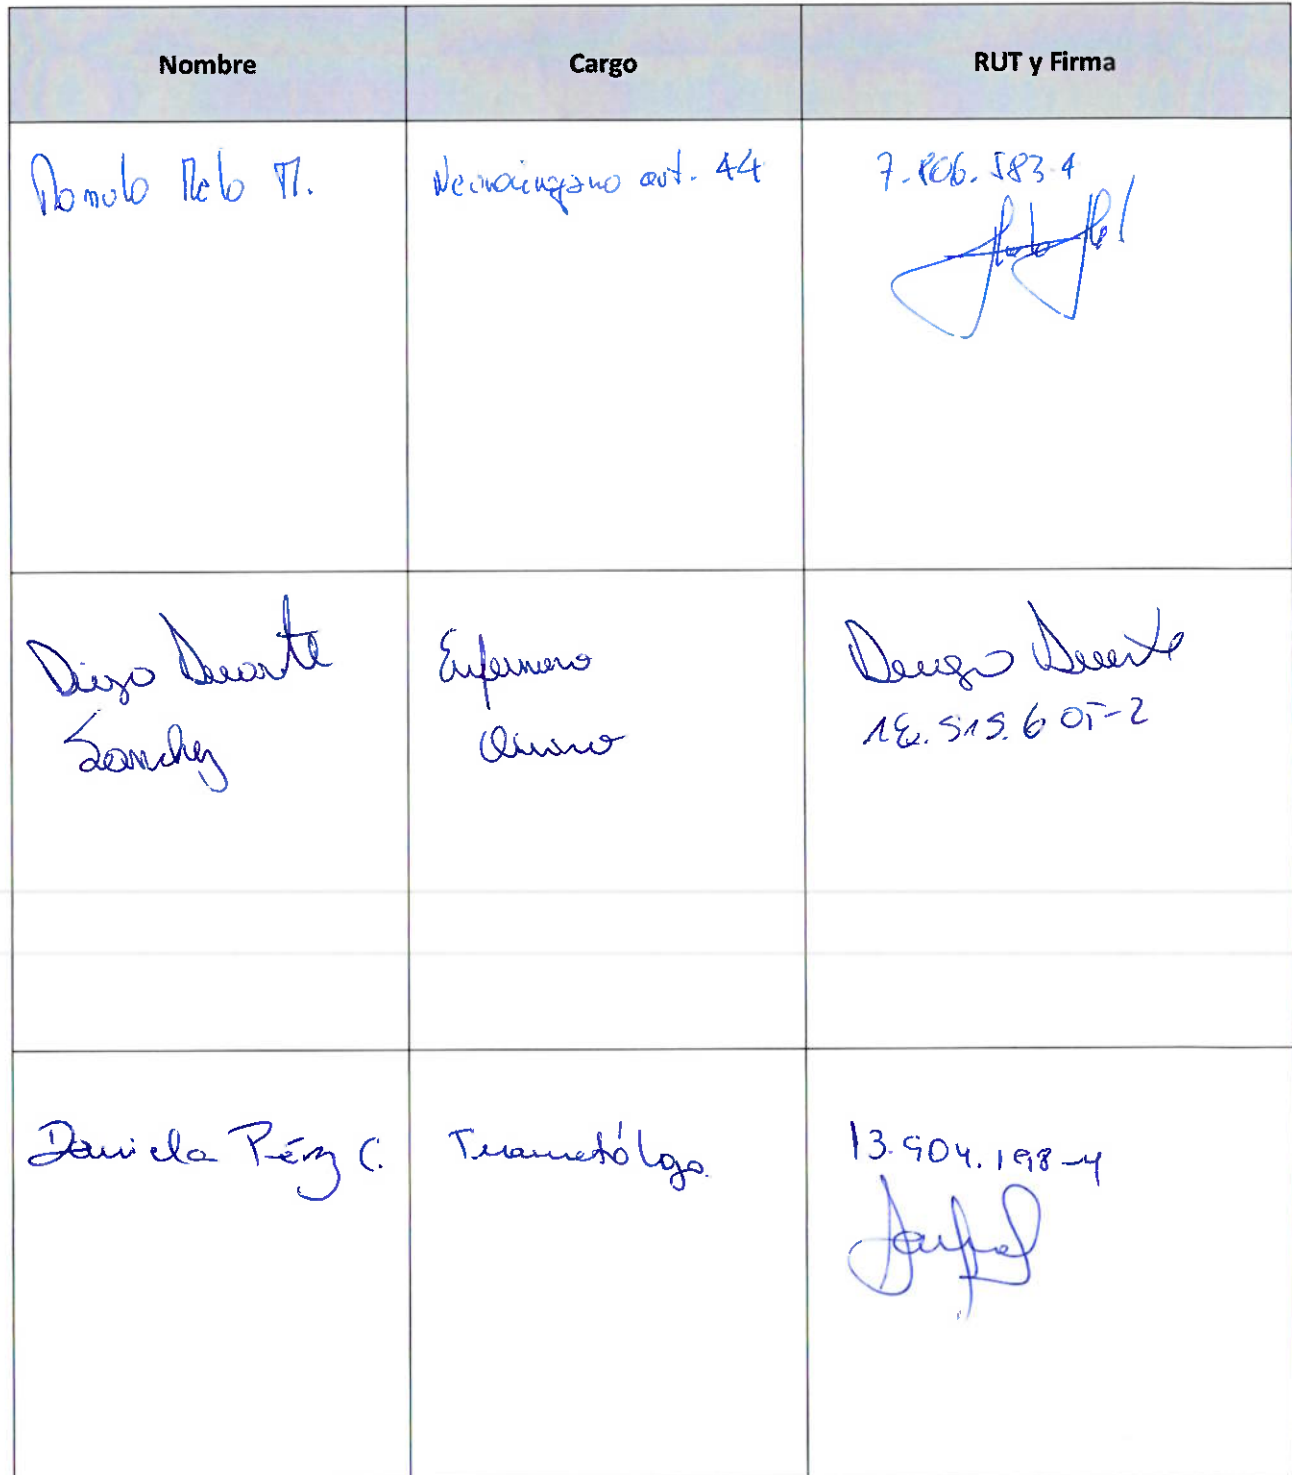 Nombre
Cargo
RUT y Firma
Romulo Melo M.
Neurocirujano art. 44
7.806.583-1
Diego Duarte
Sanchez
Enfermero
Diego Duarte
Daniela Pérez C.
Traumatóloga
13.904.198-4